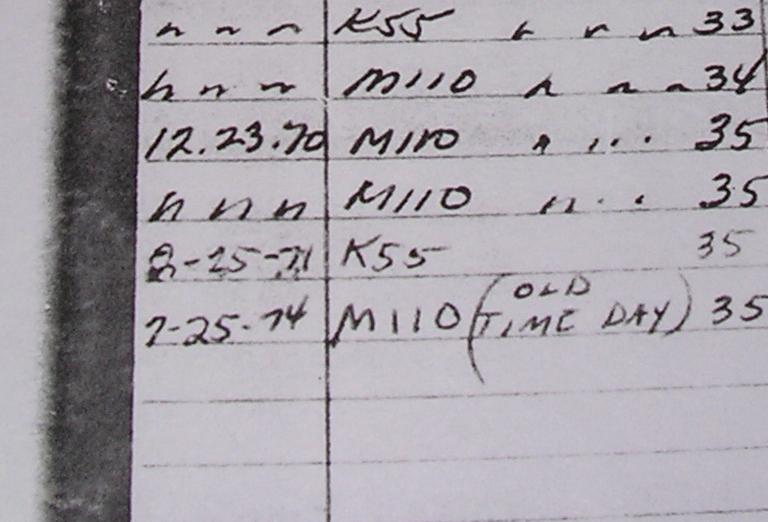 " " " K55 " " " 33
" " " M110 " " " 34
12.23.70 M110 " " " 35
" " " M110 " " " 35
2-25-71 K55 35
7-25-74 M110 (OLD TIME DAY) 35